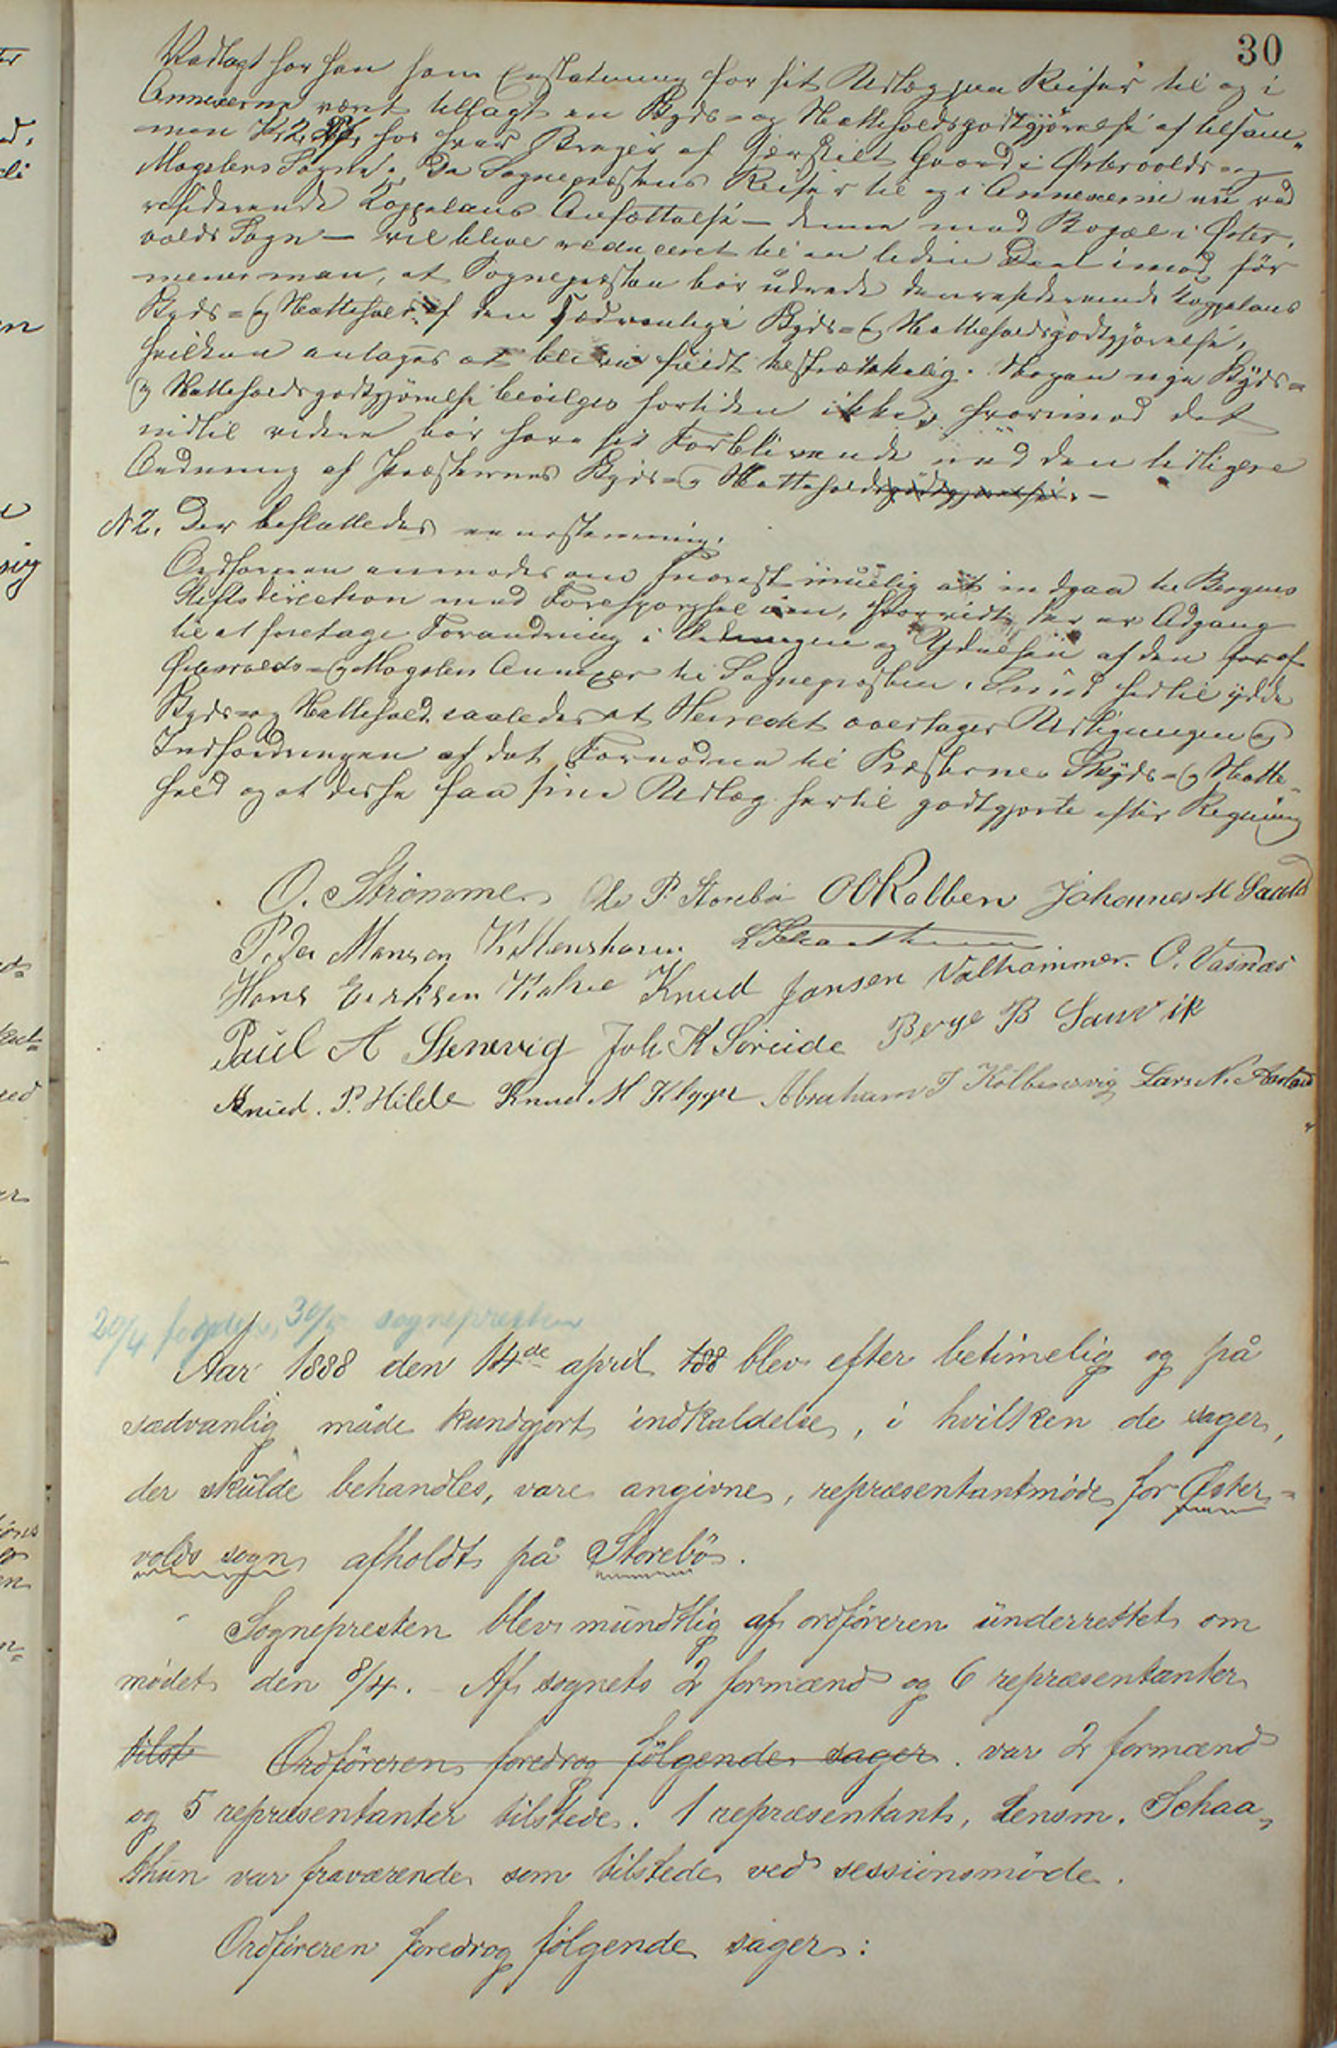 30
Vedlagt har han som Erstatning for sit Udlæg paa Reiser til og i
Annexerne været tillagt en Skyds- og Natteholdsgodtgjørelse af tilsam-
men Kr 2, hos hver Bruger af særskilt Gaard i Østervolds- og
Møgsters Sogne. Da Sognepræstens Reiser til og i Annexerne nu ved
residerende Kappelans Ansættelse – denne med Bopæl i Øster-
volds Sogn – vil blive reduceret til en liden Deel imod før
mener man, at Sognepræsten bør udrede den residerende Kappelans
Skyds- og Nattehold af den sædvanlige Skyds- og Natteholdsgodtgjørelse,
hvilken antages at blive fuldt tilstrækkelig. Nogen nye Skyds-
og Natteholdsgodtgjørelse bevilges fortiden ikke, hvorimod det
indtil videre bør have sit Forblivende med den tidligere
Ordning af Præsternes Skyds- og Natteholdsgodtgjørelse. –
N 2. Der besluttedes eenstemmig:
Ordføreren anmodes om snarest muelig at indgaa til Bergens
Stiftsdirection med Forespørgsel om, hvorvidt der er Adgang
til at foretage Forandring i Ordningen og Ydelsen af den for af
Østervolds- og Møgsters Annexer til Sognepræsten i Sund hertil ydede
Skyds- og Nattehold saaledes at Herredet overtager Udligningen og
Inddrivningen af det Fornødne til Præsternes Skyds- og Natte-
hold og at disse faa sine Udlæg hertil godtgjorte efter Regning
O. Strömme Ole P. Storebö O Rabben Johannes M
Peder Monsen K Schaathun
Hans Eriksen Kalve Knud Jansen Valhammer. O. Vasnæs
Paul A Stenevig Joh. K Söreide Berge B Sauvik
Knud. P. Hilde Knud M Klyppe Abraham J Kolbensvig Lars N.
20/4 fogden, 30/ sognepresten
Aar 1888 den 14de april 188 blev efter betimelig og på
sædvanlig måde kundgjort indkaldelse, i hvilken de sager,
der skulde behandles, vare angivne, repræsentantmöde for Öster-
volds sogn afholdt på Storebö.
Sognepresten blev mundtlig af ordföreren underrettet om
mödet den 8/4. – Af sognets 2 formænd og 6 repræsentanter
tilst Ordföreren foredrog fölgende sager. var 2 formænd
og 5 repræsentanter tilstede. 1 repræsentant, Lensm. Schaa-
thun var fraværende som tilstede ved sessionsmöde.
Ordföreren foredrog fölgende sager: